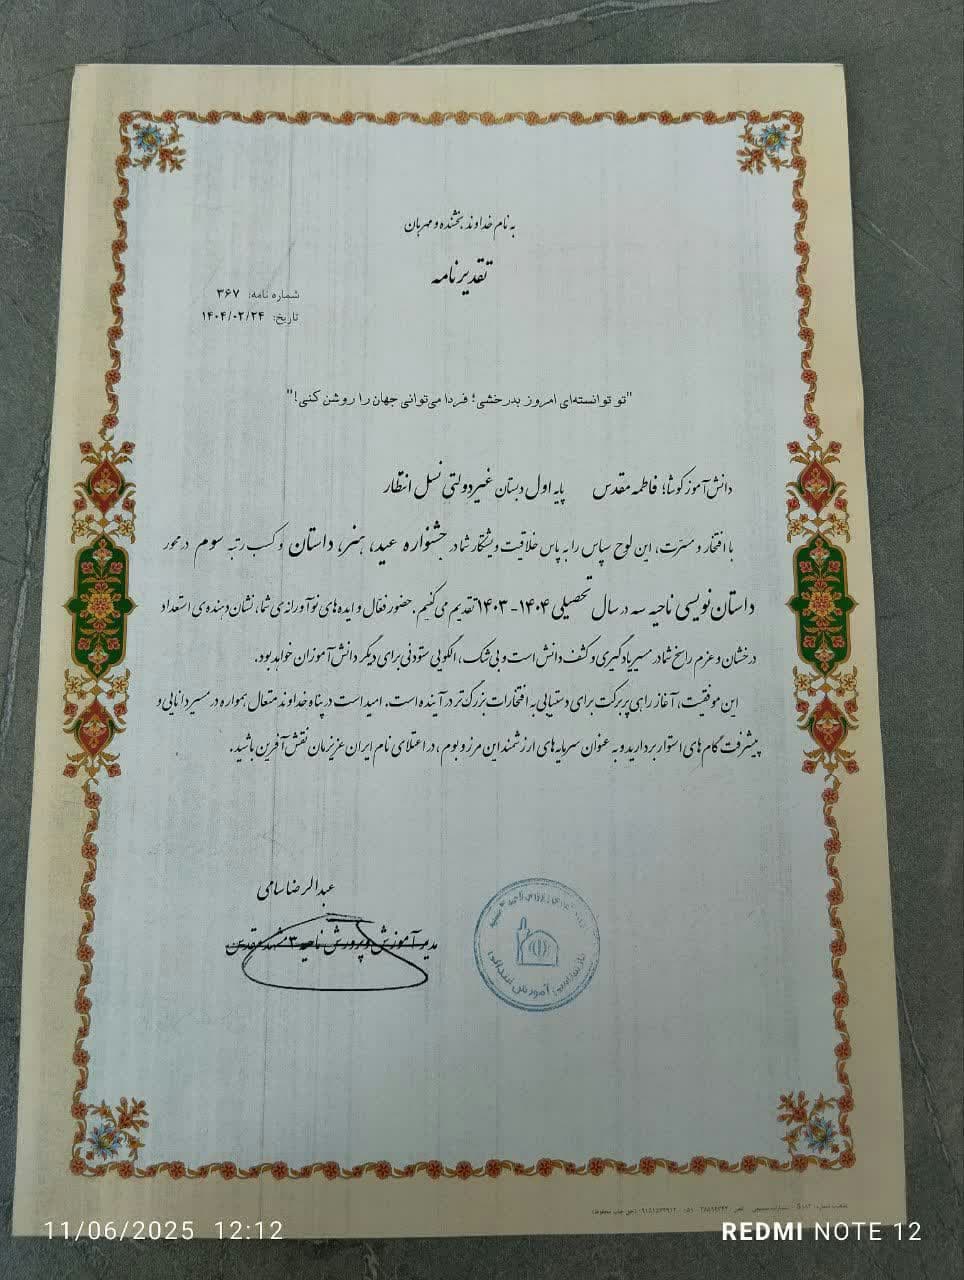 به نام خداوند بخشنده و مهربان
تقدیرنامه
شماره نامه: ۳۶۷
تاریخ: ۱۴۰۴/۰۲/۲۴
"تو توانسته‌ای امروز بدرخشی؛ فردا می‌توانی جهان را روشن کنی!"
دانش‌آموز کوشا؛ فاطمه مقدس پایه اول دبستان غیردولتی نسل انتظار
با افتخار و مسرت، این لوح سپاس را به پاس خلاقیت و پشتکار شما در جشنواره عید، هنر، داستان و کسب رتبه سوم در محور
داستان نویسی ناحیه سه در سال تحصیلی ۱۴۰۴-۱۴۰۳ تقدیم می‌کنیم. حضور فعال و ایده‌های نوآورانه‌ی شما، نشان‌دهنده‌ی استعداد
درخشان و عزم راسخ شما در مسیر یادگیری و کشف دانش است و بی‌شک، الگویی ستودنی برای دیگر دانش‌آموزان خواهد بود.
این موفقیت، آغاز راهی پربرکت برای دستیابی به افتخارات بزرگ‌تر در آینده است. امید است در پناه خداوند متعال همواره در مسیر دانایی و
پیشرفت گام‌های استوار بردارید و به عنوان سرمایه‌های ارزشمند این مرز و بوم، در اعتلای نام ایران عزیزمان نقش‌آفرین باشید.
عبدالرضا سامی
مدیر آموزش و پرورش ناحیه ۳ مشهد مقدس
آموزش ابتدائی
11/06/2025 12:12
REDMI NOTE 12